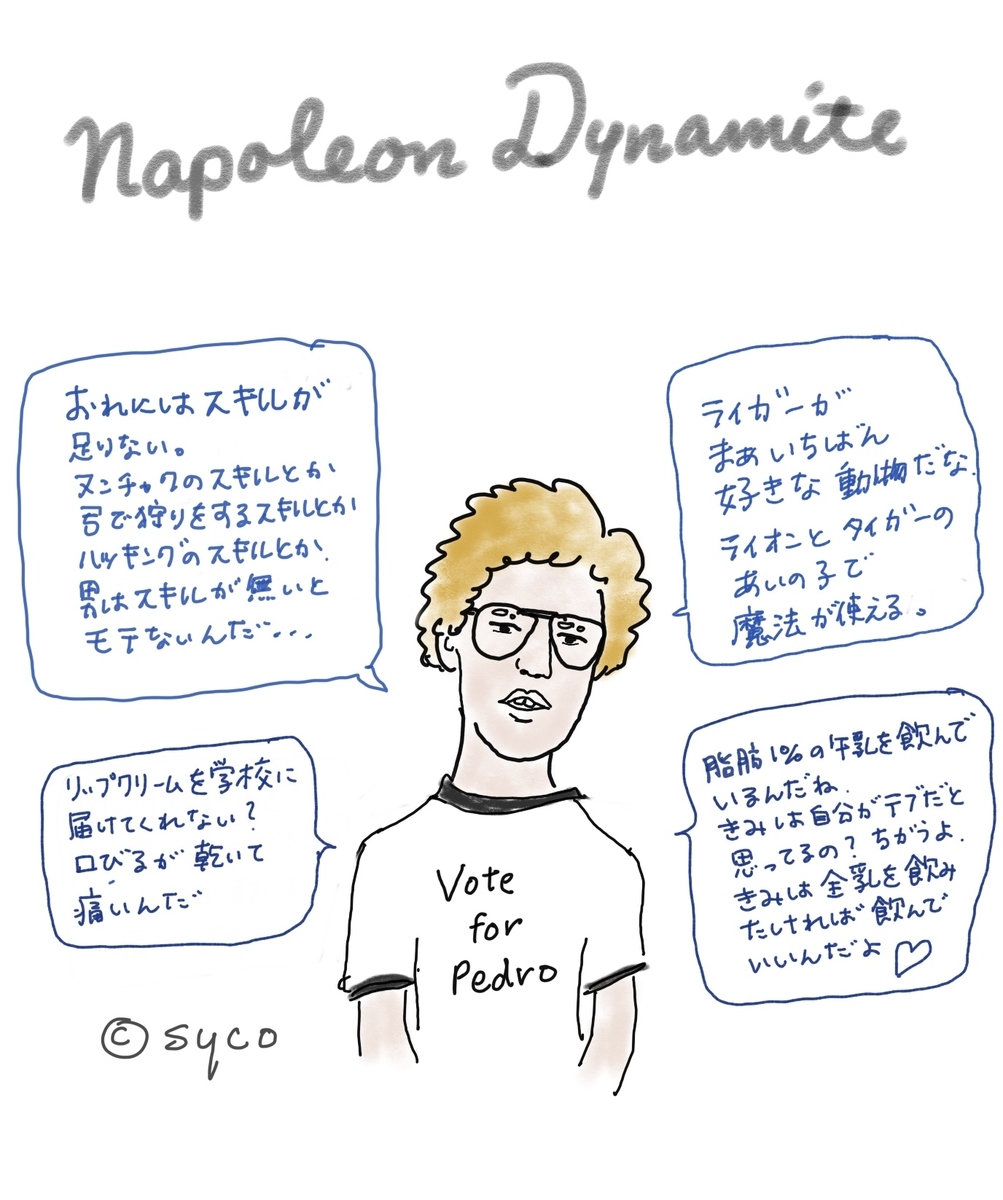 Napoleon Dynamite
おれにはスキルが
足りない。
ヌンチャクのスキルとか
弓で狩りをするスキルとか
ハッキングのスキルとか.
男はスキルが無いと
モテないんだ...
ライガーが
まぁいちばん
好きな動物だな.
ライオンとタイガーの
あいの子で
魔法が使える。
リップクリームを学校に
届けてくれない?
口びるが乾いて
痛いんだ
脂肪1%の牛乳を飲んで
いるんだね.
きみは自分がデブだと
思ってるの? ちがうよ.
きみは全乳を飲み
たければ飲んで
いいんだよ♡
Vote
for
Pedro
© syco